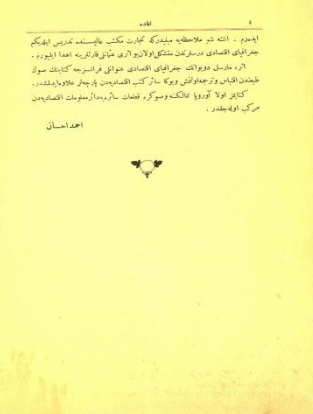 ٤ افاده
ايده‌رم . ايشته شو ملاحظه‌يه مبنيدركه تجارت مكتب عاليسنده تدريس ايلديكم
جغرافياى اقتصادى درسلرندن متشكل اولان بو اثرى عثمانلى قارئلرينه اهدا ايليورم .
اثر، مارسل دوبوانك جغرافياى اقتصادى عنوانلى فرانسزجه كتابنك صوك
طبعندن اقتباس وترجمه اولنمش وبوكا سائر كتب اقتصاديه‌دن پارچه‌لر علاوه ايدلمشدر.
كتابمز اولا آوروپا ممالكنه وصوكره قطعات سائره‌يه دائر معلومات اقتصاديه‌دن
مركب اوله‌جقدر.
احمد احسان